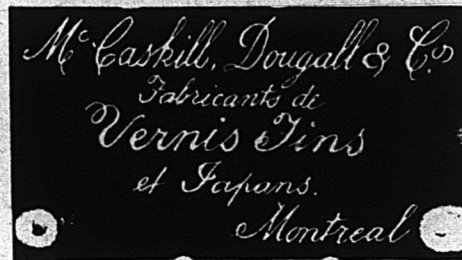 Mc Caskill, Dougall & Co
Fabricants de
Vernis Fins
et Japons.
Montreal